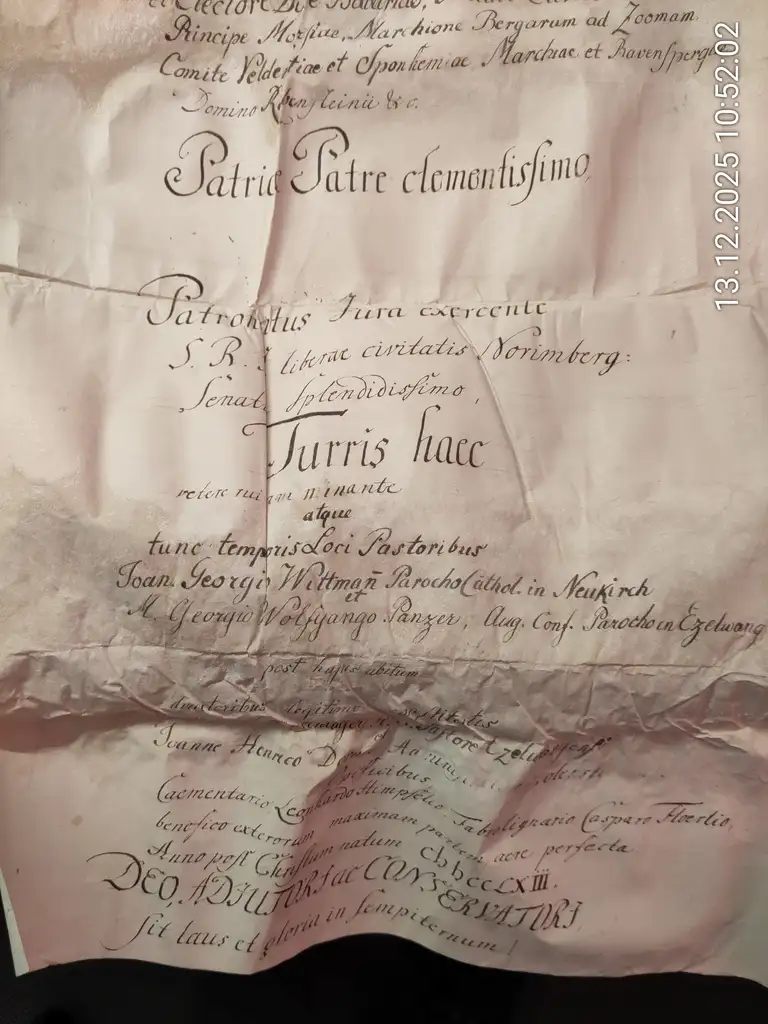 et Electore Duce Bavariae,
Principe Morsiae, Marchione Bergarum ad Zoomam
Comite Veldertiae et Sponhemiae, Marchiae et Ravenspergae
Domino Rbensteinii &c.
Patriae Patre clementissimo,
Patronatus Jura exercente
S. R. J liberae civitatis Norimberg:
Senat splendidissimo,
Turris haec
vetere ruinam minante
atque
tunc temporis Loci Pastoribus
Joan. Georgio Wittman̄ Parocho Cathol. in Neukirch
et
M. Georgio Wolfgango Panzer, Aug. Conf. Parocho in Ezelwang
post hujus abitum
legitime
Joanne Henrico
Caementario Leonhardo Himpselio, Tabulignario Casparo Floerlio,
benefico exterorum maximam partem aere perfecta
Anno post Christum natum
DEO, ADJUTORI ac CONSERVATORI
sit laus et gloria in sempiternum!
13.12.2025 10:52:02